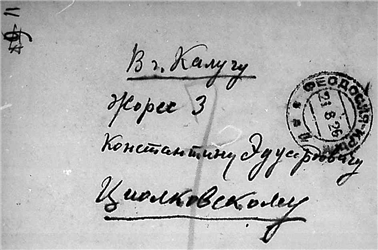 В г. Калугу
Жорес 3
Константину Эдуардовичу
Циолковскому
ФЕОДОСИЯ-КРЫМ
23 8 26